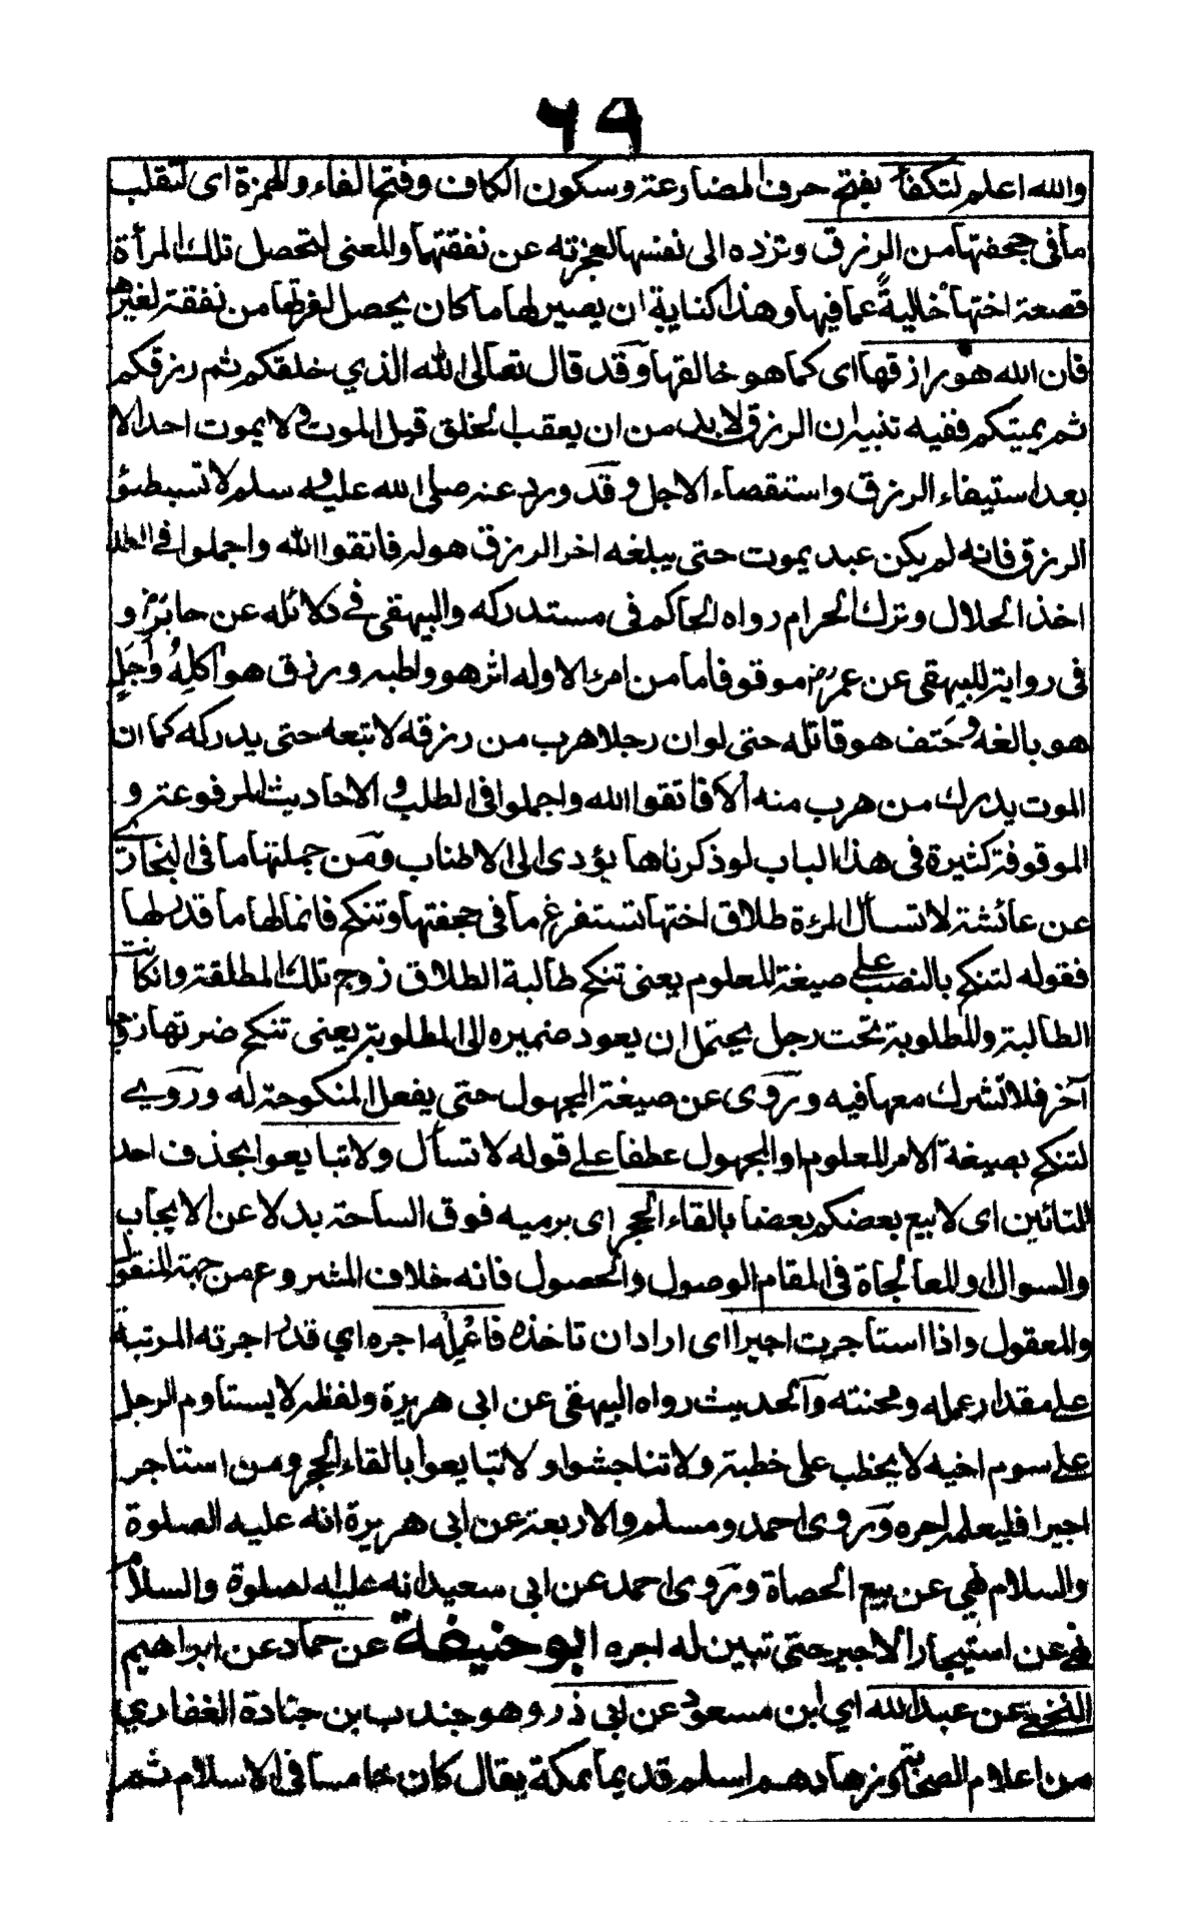 ٦٩
والله اعلم لتكفأ بفتح حرف المضارعة وسكون الكاف وفتح الفاء والهمزة اى لتقلب
ما فى جحفتها من الرزق وتزده الى نفسها لعجزته عن نفقتها والمعنى لتحصل تلك المرأة
قصعة اختها خاليةً عما فيها وهذا كناية ان يصير لها ما كان يحصل لضرتها من نفقة لغيرها
فان الله هو رازقها اى كما هو خالقها وقد قال تعالى الله الذي خلقكم ثم رزقكم
ثم يميتكم ففيه تنبيه ان الرزق لا بد من ان يعقب الخلق قبل الموت ولا يموت احد الا
بعد استيفاء الرزق واستقصاء الاجل وقد ورد عنه صلى الله عليه وسلم لا تستبطئو
الرزق فانه لم يكن عبد يموت حتى يبلغه اخر الرزق هو له فاتقوا الله واجملوا فى الطلب
اخذ الحلال وترك الحرام رواه الحاكم فى مستدركه والبيهقى فى دلائله عن جابر و
فى رواية للبيهقى عن عمر موقوفا ما من امرئ الا وله اثر هو واطيه ورزق هو اٰكلهُ واَجَلٍ
هو بالغه وحَتف هو قاتله حتى لو ان رجلا هرب من رزقه لا تبعه حتى يدركه كما ان
الموت يدرك من هرب منه ألا فاتقوا الله واجملوا فى الطلب و الاحاديث المرفوعة و
الموقوفة كثيرة فى هذا الباب لو ذكرناها يؤدى الى الاطناب ومن جملتها ما فى البخارى
عن عائشة لا تسأل المرءة طلاق اختها تستفرغ ما فى جحفتها وتنكح فانما لها ما قدر لها
فقوله لتنكح بالنصب على صيغة المعلوم يعنى تنكح طالبة الطلاق زوج تلك المطلقة وانكانت
الطالبة والمطلوبة تحت رجل يحتمل ان يعود ضميره الى المطلوبة يعنى تنكح ضرتها زوجا
آخر فلا تشرك معها فيه وتروى عن صيغة المجهول حتى يفعل المنكوحة له وروي
لتنكح بصيغة الامر المعلوم او المجهول عطفا على قوله لا تسأل ولا تبايعوا بحذف احد
التائين اى لا بيع بعضكم بعضا بالقاء الحجر اى برميه فوق الساحة بدلا عن الايجاب
والسوال والمعالجاة فى المقام الوصول والحصول فانه خلاف المشروع من جهة المنقول
والمعقول واذا استاجرت اجيرا اى اراد ان تاخذه فاعْلِمْه اجره اي قدر اجرته المرتبة
على مقدار عمله ومحنته والحديث رواه البيهقى عن ابى هريرة ولفظه لا يستاوم الرجل
على سوم اخيه لا يخطب على خطبة ولا تناجشوا ولا تبايعوا بالقاء الحجر ومن استاجر
اجيرا فليعلمه اجره وروى احمد ومسلم والاربعة عن ابى هريرة انه عليه الصلوة
والسلام نهى عن بيع الحصاة وروى احمد عن ابى سعيد انه عليه لصلوة والسلام
نهى عن استيجار الاجير حتى تبين له اجره ابو حنيفة عن حماد عن ابراهيم
النخعى عن عبد الله اي ابن مسعود عن ابى ذر وهو جندب بن جنادة الغفاري
من اعلام الصحابة وزهادهم اسلم قديما بمكة يقال كان خامسا فى الاسلام ثم